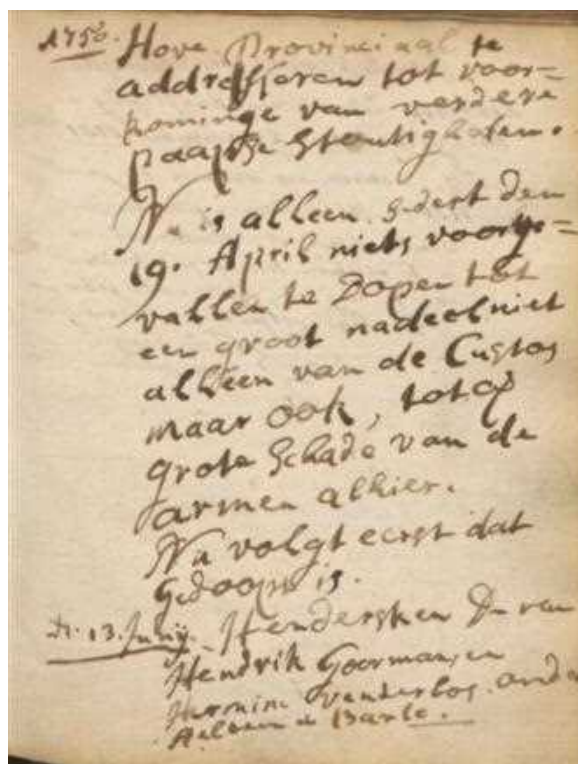 1750. Hove Provinciaal te
addresseren tot voor=
kominge van verdere
paapse Stoutigheden.
Nu is alleen sedert den
19. April niets voorge=
vallen te Dopen tot
een groot nadeel niet
alleen van de Custos
maar ook, tot
grote Schade van de
armen alhier.
Nu volgt eerst dat
gedoopt is.
d. 13. Junij. Hendersken D. van
Hendrik Goormansen
Hermine